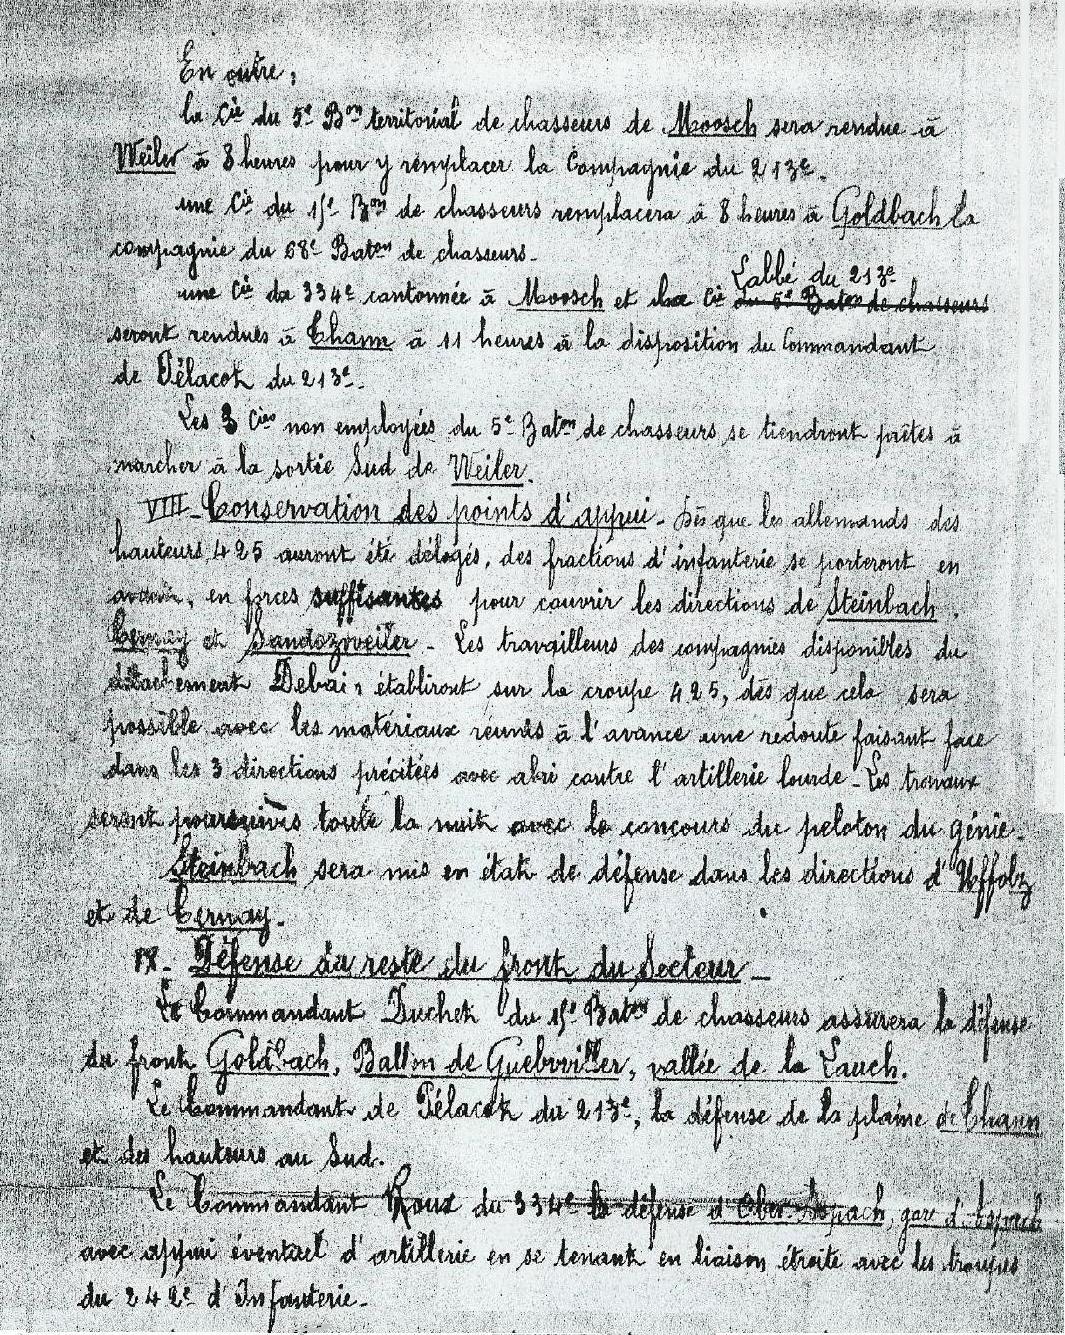 En outre,
la Cie du 5e Bon territorial de chasseurs de Moosch sera rendue à
Weiler à 8 heures pour y remplacer la Compagnie du 213e.
une Cie du 15e Bon de chasseurs remplacera à 8 heures à Goldbach la
compagnie du 68e Baton de chasseurs.
Labbé du 213e
une Cie du 334e cantonnée à Moosch et la Cie du 5e Baton de chasseurs
seront rendues à Thann à 11 heures à la disposition du Commandant
de Pélacot du 213e.
Les 3 Cies non employées du 5e Baton de chasseurs se tiendront prêtes à
marcher à la sortie Sud de Weiler.
VIII - Conservation des points d'appui - Dès que les allemands des
hauteurs 425 auront été délogés, des fractions d'infanterie se porteront en
avant, en forces suffisantes pour couvrir les directions de Steinbach,
Cernay et Sandozweiler - Les travailleurs des compagnies disponibles du
détachement Debain établiront sur la croupe 425, dès que cela sera
possible avec les matériaux réunis à l'avance une redoute faisant face
dans les 3 directions précitées avec abri contre l'artillerie lourde - Les travaux
seront poursuivis toute la nuit avec le concours du peloton du génie -
Steinbach sera mis en état de défense dans les directions d'Uffolz
et de Cernay.
IX - Défense du reste du front du Secteur -
Le Commandant Duchet du 15e Baton de chasseurs assurera la défense
du front Goldbach, Ballon de Guebwiller, vallée de la Lauch.
Le Commandant de Pélacot du 213e, la défense de la plaine de Thann
et des hauteurs au Sud.
Le Commandant Roux du 334e la défense d'Ober-Aspach, gare d'Aspach
avec appui éventuel d'artillerie en se tenant en liaison étroite avec les troupes
du 242e d'Infanterie -